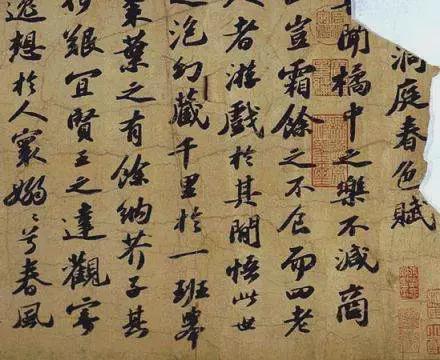 洞庭春色賦
聞橘中之樂不減商
山豈霜餘之不食而四老
人者游戲於其間悟此世
之泡幻藏千里於一班舉
棗葉之有餘納芥子其
何艱宜賢王之達觀寄
逸想於人寰嫋〻兮春風